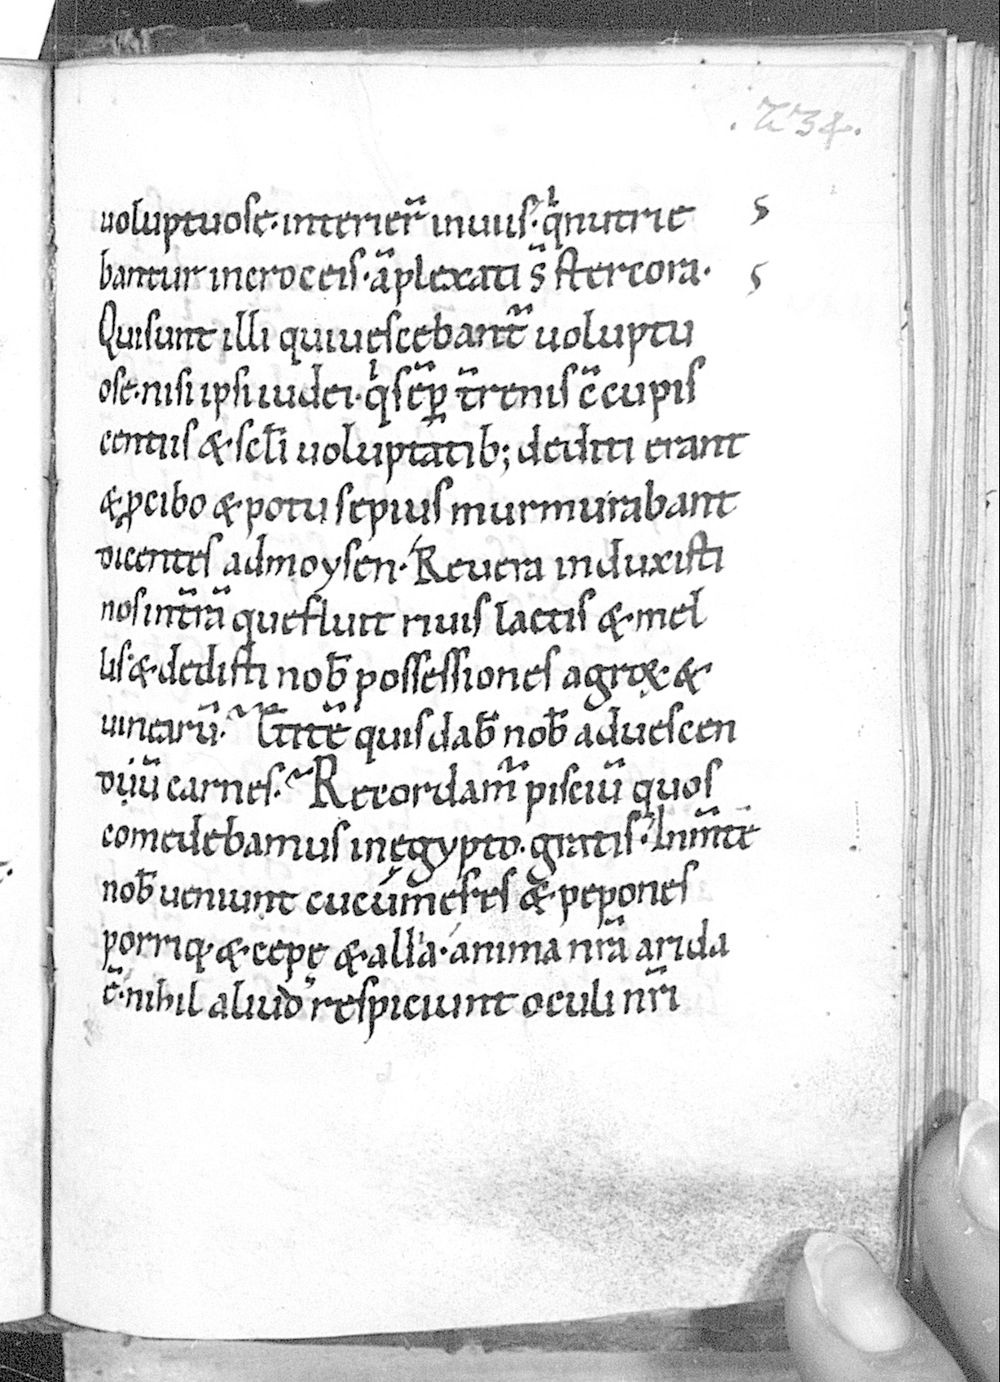 .234.
uoluptuose. interier̄ inuiis. q̄ nutrie
bantur incroceis. āplexati s̄ stercora.
Qui sunt illi qui uescebant̄ uoluptu
ose. nisi ipsi iudei. q̄ sēp t̄renis c̄cupis
centiis & scl̄i uoluptatib; dediti erant
& p cibo & potu sepius murmurabant
dicentes ad moysen. Reuera induxisti
nos int̄rā que fluit riuis lactis & mel
lis. & dedisti nob̄ possessiones agroꝝ &
uinearū. quis dab̄ nob̄ aduescen
dūū carnes. Recordam̄ pisciū quos
comedebamus in ęgypto. gratis. Inm̄tē
nob̄ ueniunt cucūmeres & pepones
porriq. & cepe & allia. anima nr̄a arida
ē. nihil aliud respiciunt oculi nr̄i